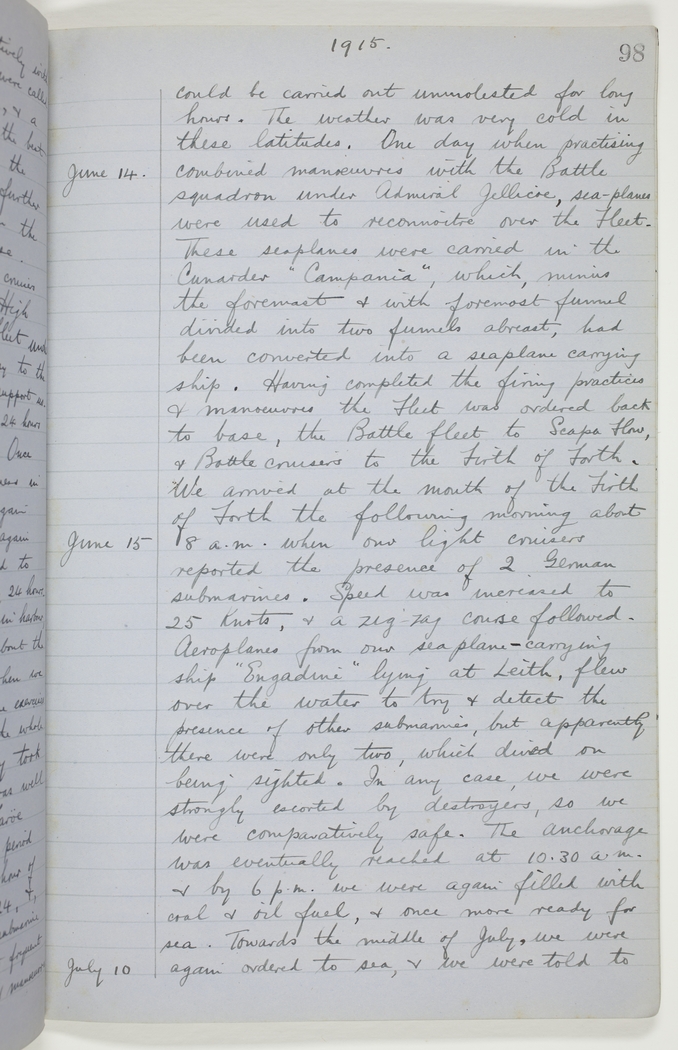 1915.
98
could be carried out unmolested for long
hours. The weather was very cold in
these latitudes. One day when practising
June 14. combined manœuvres with the Battle
squadron under Admiral Jellicoe, sea-planes
were used to reconnoitre over the Fleet.
These seaplanes were carried in the
Cunarder "Campania", which, minus
the foremast & with foremost funnel
divided into two funnels abreast, had
been converted into a seaplane carrying
ship. Having completed the firing practices
& manoeuvres the Fleet was ordered back
to base, the Battle fleet to Scapa Flow,
& Battle cruisers to the Firth of Forth.
We arrived at the mouth of the Firth
of Forth the following morning about
June 15 8 a.m. when our light cruisers
reported the presence of 2 German
submarines. Speed was increased to
25 Knots, & a zig-zag course followed.
Aeroplanes from our seaplane-carrying
ship "Engadine" lying at Leith, flew
over the water to try & detect the
presence of other submarines, but apparently
there were only two, which dived on
being sighted. In any case, we were
strongly escorted by destroyers, so we
were comparatively safe. The anchorage
was eventually reached at 10.30 a.m.
& by 6 p.m. we were again filled with
coal & oil fuel, & once more ready for
sea. Towards the middle of July, we were
July 10 again ordered to sea, & we were told to